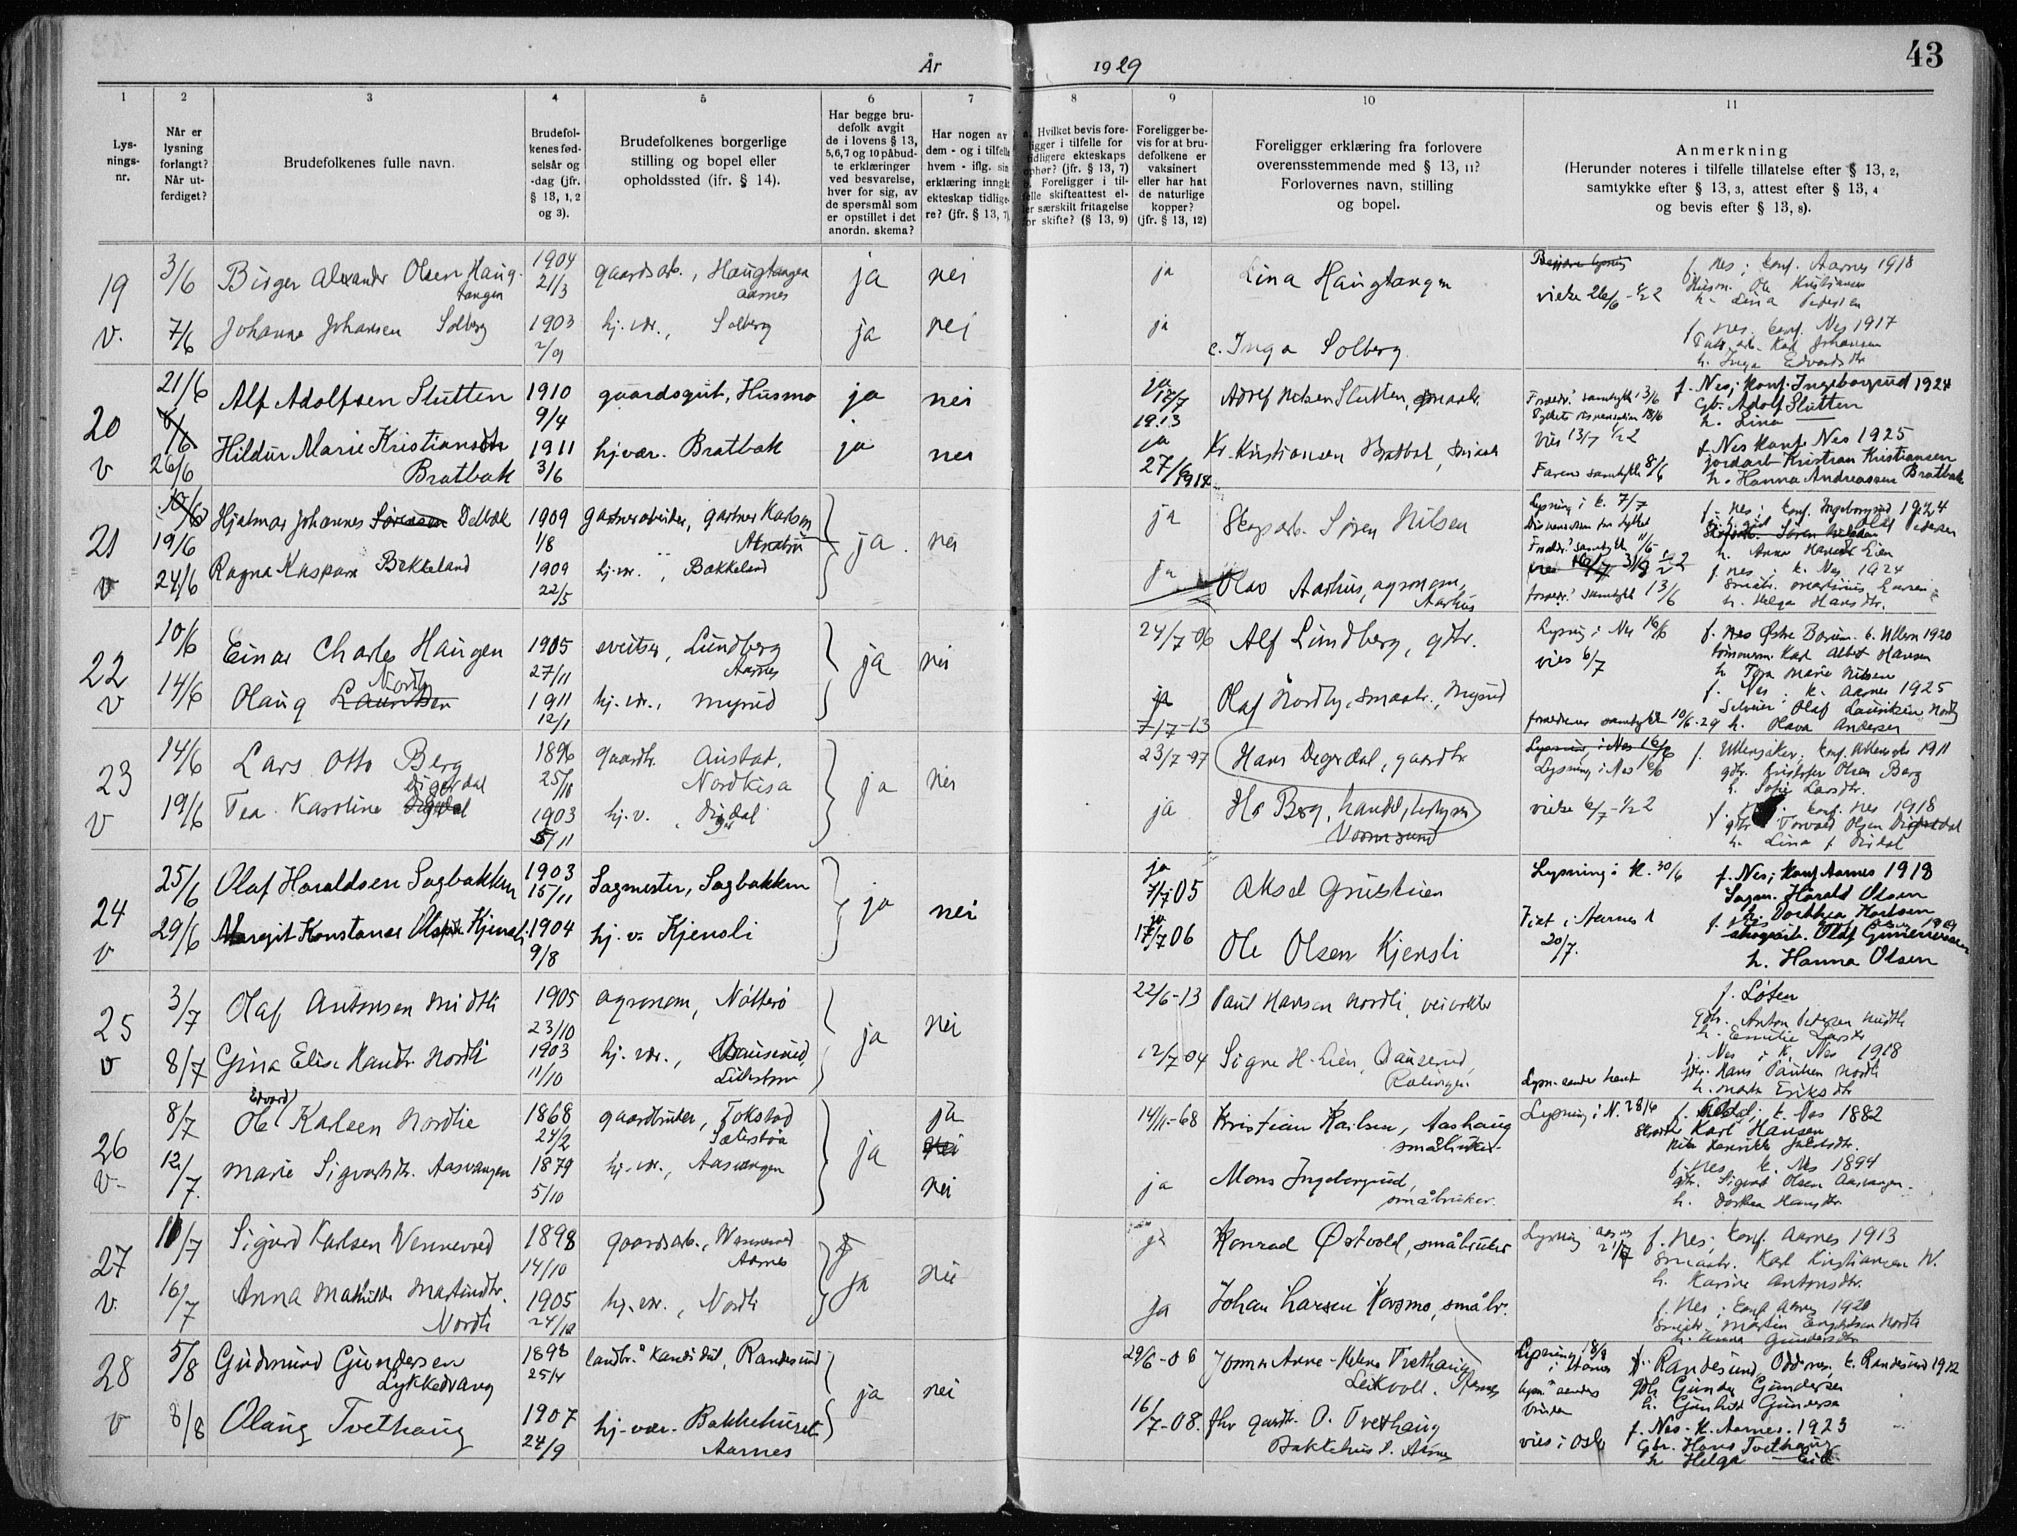 43
År 1929
1 2 3 4 5 6 7 8 9 10 11
Lys-
nings-
nr.
Når er
lysning
forlangt?
Når ut-
ferdiget?
Brudefolkenes fulle navn.
Brudefol-
kenes fød-
selsår og
-dag (jfr.
§ 13, 1, 2
og 3).
Brudefolkenes borgerlige
stilling og bopel eller
opholdssted (jfr. § 14).
Har begge bru-
defolk avgit
de i lovens § 13,
5,6,7 og 10 påbud-
te erklæringer
ved besvarelse,
hver for sig, av
de spørsmål som
er opstillet i det
anordn. skema?
Har nogen av
dem - og i tilfelle
hvem - iflg. sin
erklæring inngåt
ekteskap tidlige-
re? (jfr. § 13, 7)
a. Hvilket bevis fore-
ligger i tilfelle for
tidligere ekteskaps
ophør? (jfr. § 13, 7)
b. Foreligger i til-
felle skifteattest el-
ler særskilt fritagelse
for skifte? (§ 13, 9)
Foreligger be-
vis for at bru-
defolkene er
vaksinert
eller har hat
de naturlige
kopper?
(jfr. § 13, 12)
Foreligger erklæring fra forlovere
overensstemmende med § 13, 11?
Forlovernes navn, stilling
og bopel.
Anmerkning
(Herunder noteres i tilfelle tillatelse efter § 13, 2,
samtykke efter § 13, 3, attest efter § 13, 4
og bevis efter § 13, 8).
19 3/6 Birger Alexander Olsen Haug-
tangen 1904 21/3 gaardsarb., Haugtangen
Aarnes ja nei ja Lina Haugtangen
vielse 26/6 - 1/2 2
f. Nes; konf. Aarnes 1918
Husm. Ole Kristiansen
h. Lina Pedersen
v. 7/6 Johanna Johansen Solberg 1903 2/9 hj. vær., Solberg ja nei ja Inga Solberg
f. Nes. konf. Nes 1917
Karl Johansen
h. Inga Edvardsdtr.
20 21/6 Alf Adolfsen Slutten 1910 9/4 gaardsgut, Husmo ja nei ja 17/7 1913 Adolf Nilsen Slutten, smaabr.
Foreldr. samtykke 13/6
vies 13/7 1/2 2
f. Nes; konf. Ingeborgrud 1924
Gbr. Adolf Slutten
h. Lina
v 26/6 Hildur Marie Kristiansdtr
Bratbak 1911 3/6 hj.vær. Bratbak ja nei ja 27/6 1917 Kr. Kristiansen Bratbak, smaabr.
Farens samtykke 8/6
f. Nes konf. Nes 1925
jordarb. Kristian Kristiansen
h. Hanna Andreassen Bratbak
21 10/6 19/6 Hjalmar Johannes Sørensen Delbæk 1909 1/8 gartnerarbeider, gartner Karlsen ja nei ja Skogsarb. Søren Nilsen
Lysning i k. 7/7
Foreldr. samtykke 11/6
f. Nes; konf. Ingeborgrud 1924
v 24/6 Ragna Kaspara Bekkeland 1909 22/5 hj.vær., Bækkeland ja Olav Aarhus, agronom,
Aarhus
Foreldr. samtykke 13/6
f. Nes; k. Nes 1924
h. Helga Hansdtr.
22 10/6 Einar Charles Haugen 1905 27/11 sveitser, Lundberg
Aarnes ja nei 24/7-06 Alf Lundberg, gbr.
Lysning i Nes 16/6
vies 6/7
f. Nes Østre Bærum k. Ullern 1920
tømmerm. Karl Albert Hansen
h. Tora Marie Nilsen
v 14/6 Olaug Lauritsen Nordby 1911 12/1 hj.vær., Myrud ja 7/7-13 Olaf Nordby, smaabr., Myrud
foreldrenes samtykke 10/6-29
f. Nes; k. Aarnes 1925
Selveier Olaf Lauritsen Nordby
h. Olava Andersen
23 14/6 Lars Otto Berg 1896 25/10 gaardbr. Austad,
Nordkisa ja nei 23/7-97 Hans Digerdal, gaardbr
Lysning i Nes 16/6
Lysning i Nes 16/6
f. Ullensaker; konf. Ullensaker 1911
gbr. Kristoffer Olsen Berg
h. Sofie Larsdtr.
v 19/6 Tea Karoline Digerdal 1903 5/11 hj.v. Digerdal ja Hs Berg, handelsbestyrer
Vormsund
vielse 6/7 - 1/2 2
konf. Nes 1918
gbr. Torvald Olsen Digerdal
h. Lina
24 25/6 Olaf Haraldsen Sagbakken 1903 15/11 Sagmester, Sagbakken ja nei ja 7/7 05 Aksel Gruestuen
Lysning i k. 30/6
f. Nes; konf. Aarnes 1918
Sagm. Harald Olsen
h. Dorthea Karlsen
v 29/6 Margit Konstanse Olsen Kjensli 1904 9/8 hj. v. Kjensli ja 17/7 06 Ole Olsen Kjensli
Viet i Aarnes k
20/7.
skogsarb. Olaf Gunerussen
h. Hanna Olsen
25 3/7 Olaf Antonsen Midtli 1905 23/10 agronom, Nøtterø ja nei 22/6-13 Paul Hansen Nordli, veivokter
f. Løten
gbr. Anton Pedersen Midtli
h. Emilie Larsdtr
v 8/7 Gina Elise Hansdtr. Nordli 1903 11/10 hj. vær., Bausund,
Lillestrøm 12/7-04 Signe H. Lien, Bausund,
Rælingen
Lysn. sendes
f. Nes; k. Nes 1918
gbr. Hans Paulsen Nordli
h. Marte Eriksdtr
26 8/7 Ole Edvard Karlsen Nordlie 1868 24/2 gaardbruker, Fokstad
Sæterstøa ja ja nei 14/11-68 Kristian Karlsen, Aashaug
småbruker
Lysning i N. 28/6
k. Nes 1882
Karl Hansen
v. 12/7 Marie Sigvartsdtr. Aasvangen 1879 5/10 hj. vær., Aasvangen nei ja Mons Ingeborgrud,
småbruker.
f. Nes k. Nes 1894
gbr. Sigvart Olsen Aasvangen
h. Dorthea Hansdtr.
27 11/7 Sigurd Karlsen Vennevold 1898 14/10 gaardsarb., Vennevold
Aarnes ja nei ja Konrad Østvold, småbruker
Lysning Aarnes 21/7
f. Nes; konf. Aarnes 1913
Smaabr. Karl Kristiansen V.
h. Karine Antonsdtr.
v. 16/7 Anna Mathilde Martinsdtr.
Nordli 1905 24/12 hj. vær., Nordli ja Johan Larsen Vormo, småbr.
f. Nes; konf. Aarnes 1920
Småbr. Martin Engebretsen Nordli
h. Anna Gundersdtr
28 5/8 Gudmund Gundersen
Lykkedvang 1898 25/4 landbr. kandidat, Randesund ja nei 29/6-06 Anne-Helene Tvethaug
Leikvoll. Aarnes
Lysning 18/8
i Aarnes
lysn. sendes
f. Randesund, Oddernes; k. Randesund 1912
gbr. Gunder Gundersen
h. Gunhild Gundersen
v 8/8 Olaug Tvethaug 1907 24/9 hj-vær. Bakkehuset
Aarnes 16/7-08. fhv gardbr. O. Tvethaug
Bakkehus. Aarnes
vies i Oslo
f. Nes. k. Aarnes. 1923
Gbr. Hans Tvethaug
h Helga